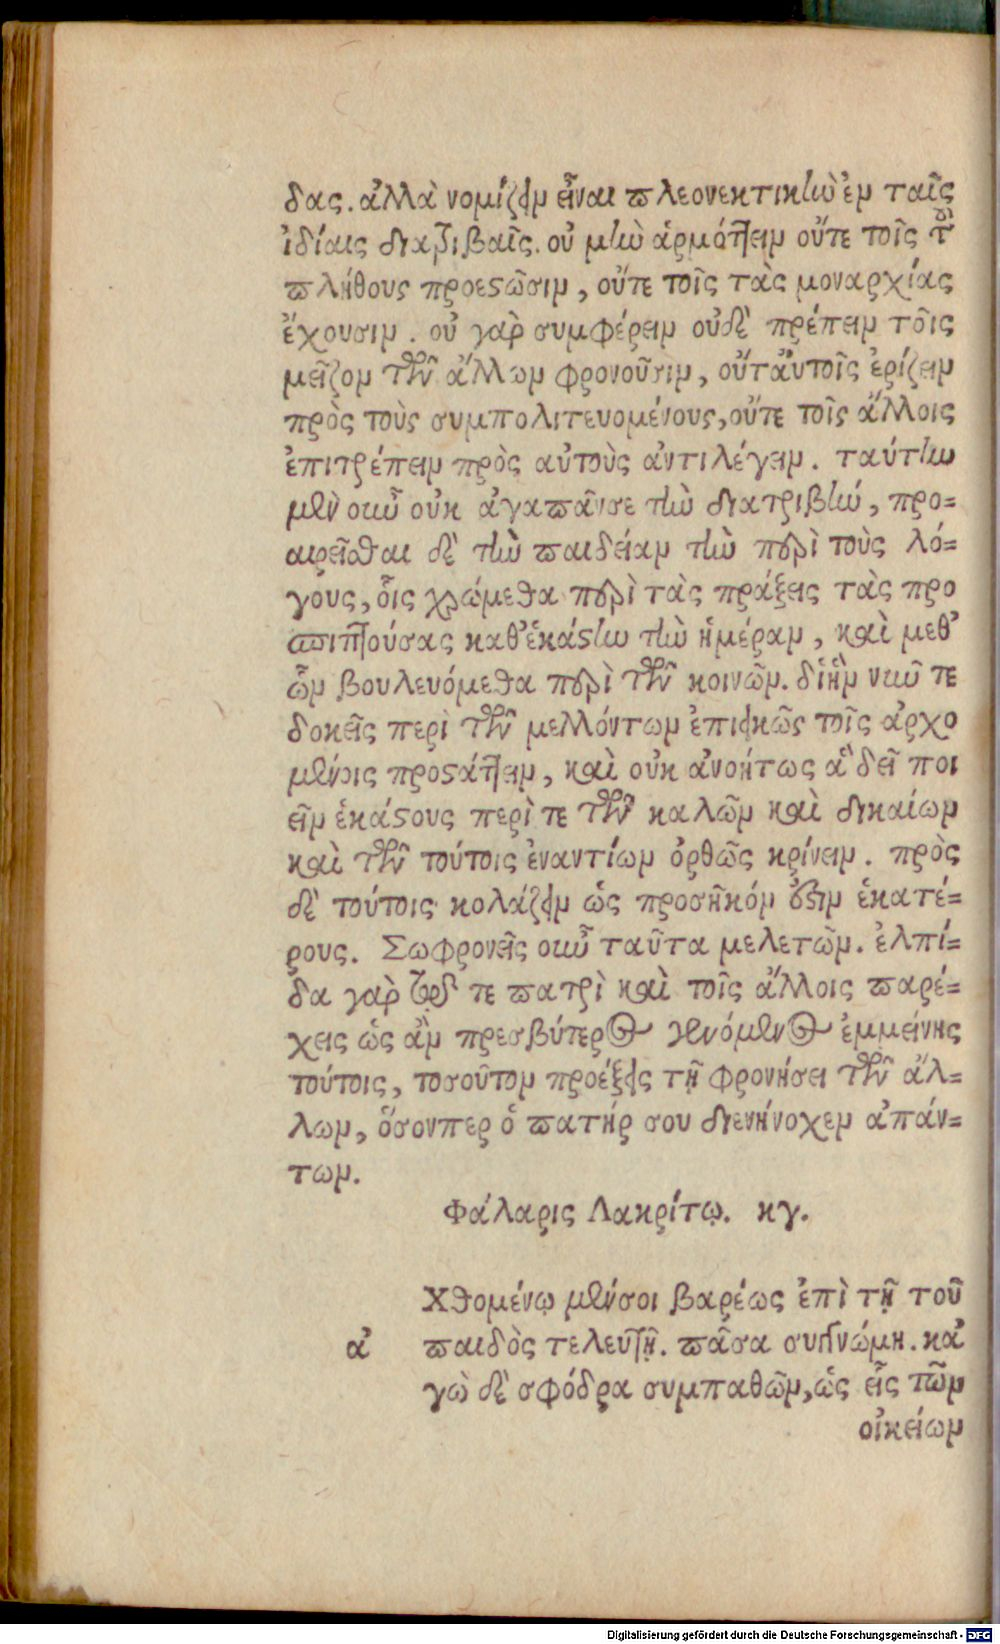 δας. ἀλλὰ νομίζειν εἶναι πλεονεκτικὴν ἐν ταῖς
ἰδίαις διατριβαῖς. οὐ μὴν ἁρμόττειν οὔτε τοῖς τοῦ
πλήθους προεστῶσιν, οὔτε τοῖς τὰς μοναρχίας
ἔχουσιν. οὐ γὰρ συμφέρειν οὐδὲ πρέπειν τοῖς
μεῖζον τῶν ἄλλων φρονοῦσιν, οὔτ' αὐτοῖς ἐρίζειν
πρὸς τοὺς συμπολιτευομένους, οὔτε τοῖς ἄλλοις
ἐπιτρέπειν πρὸς αὐτοὺς ἀντιλέγειν. ταύτην
μὲν οὖν οὐκ ἀγαπᾶν σε τὴν διατριβήν, προ-
αιρεῖσθαι δὲ τὴν παιδείαν τὴν περὶ τοὺς λό-
γους, οἷς χρώμεθα περὶ τὰς πράξεις τὰς προ
σπιπτούσας καθ' ἑκάστην τὴν ἡμέραν, καὶ μεθ'
ὧν βουλευόμεθα περὶ τῶν κοινῶν. δι' ἣν νῦν τε
δοκεῖς περὶ τῶν μελλόντων ἐπιεικῶς τοῖς ἀρχο
μένοις προστάττειν, καὶ οὐκ ἀνοήτως ἃ δεῖ ποι
εῖν ἑκάστους περί τε τῶν καλῶν καὶ δικαίων
καὶ τῶν τούτοις ἐναντίων ὀρθῶς κρίνειν. πρὸς
δὲ τούτοις κολάζειν ὡς προσῆκόν ἐστιν ἑκατέ-
ρους. Σωφρονεῖς οὖν ταῦτα μελετῶν. ἐλπί-
δα γὰρ τῷ τε πατρὶ καὶ τοῖς ἄλλοις παρέ-
χεις ὡς ἂν πρεσβύτερος γενόμενος ἐμμείνῃς
τούτοις, τοσοῦτον προέξεις τῇ φρονήσει τῶν ἄλ-
λων, ὅσονπερ ὁ πατήρ σου διενήνοχεν ἁπάν-
των.
Φάλαρις Λακρίτῳ. κγ.
Χθομένῳ μέν σοι βαρέως ἐπὶ τῇ τοῦ
ἀ παιδὸς τελευτῇ. πᾶσα συγγνώμη. κἀ
γὼ δὲ σφόδρα συμπαθῶν, ὡς εἷς τῶν
οἰκείων
Digitalisierung gefördert durch die Deutsche Forschungsgemeinschaft - DFG